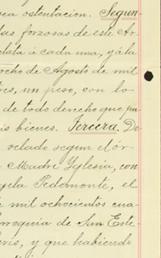 ostentacion. Segun
forzosas de este
data á cada una, y á la
ocho de Agosto de mil
un peso, con lo
de todo derecho que
is bienes. Tercera. De
oclado segun el or
Madre Iglesia, con
gela Pedemonte, el
mil ochocientos cua
rroquia de San Este
y que habiendo